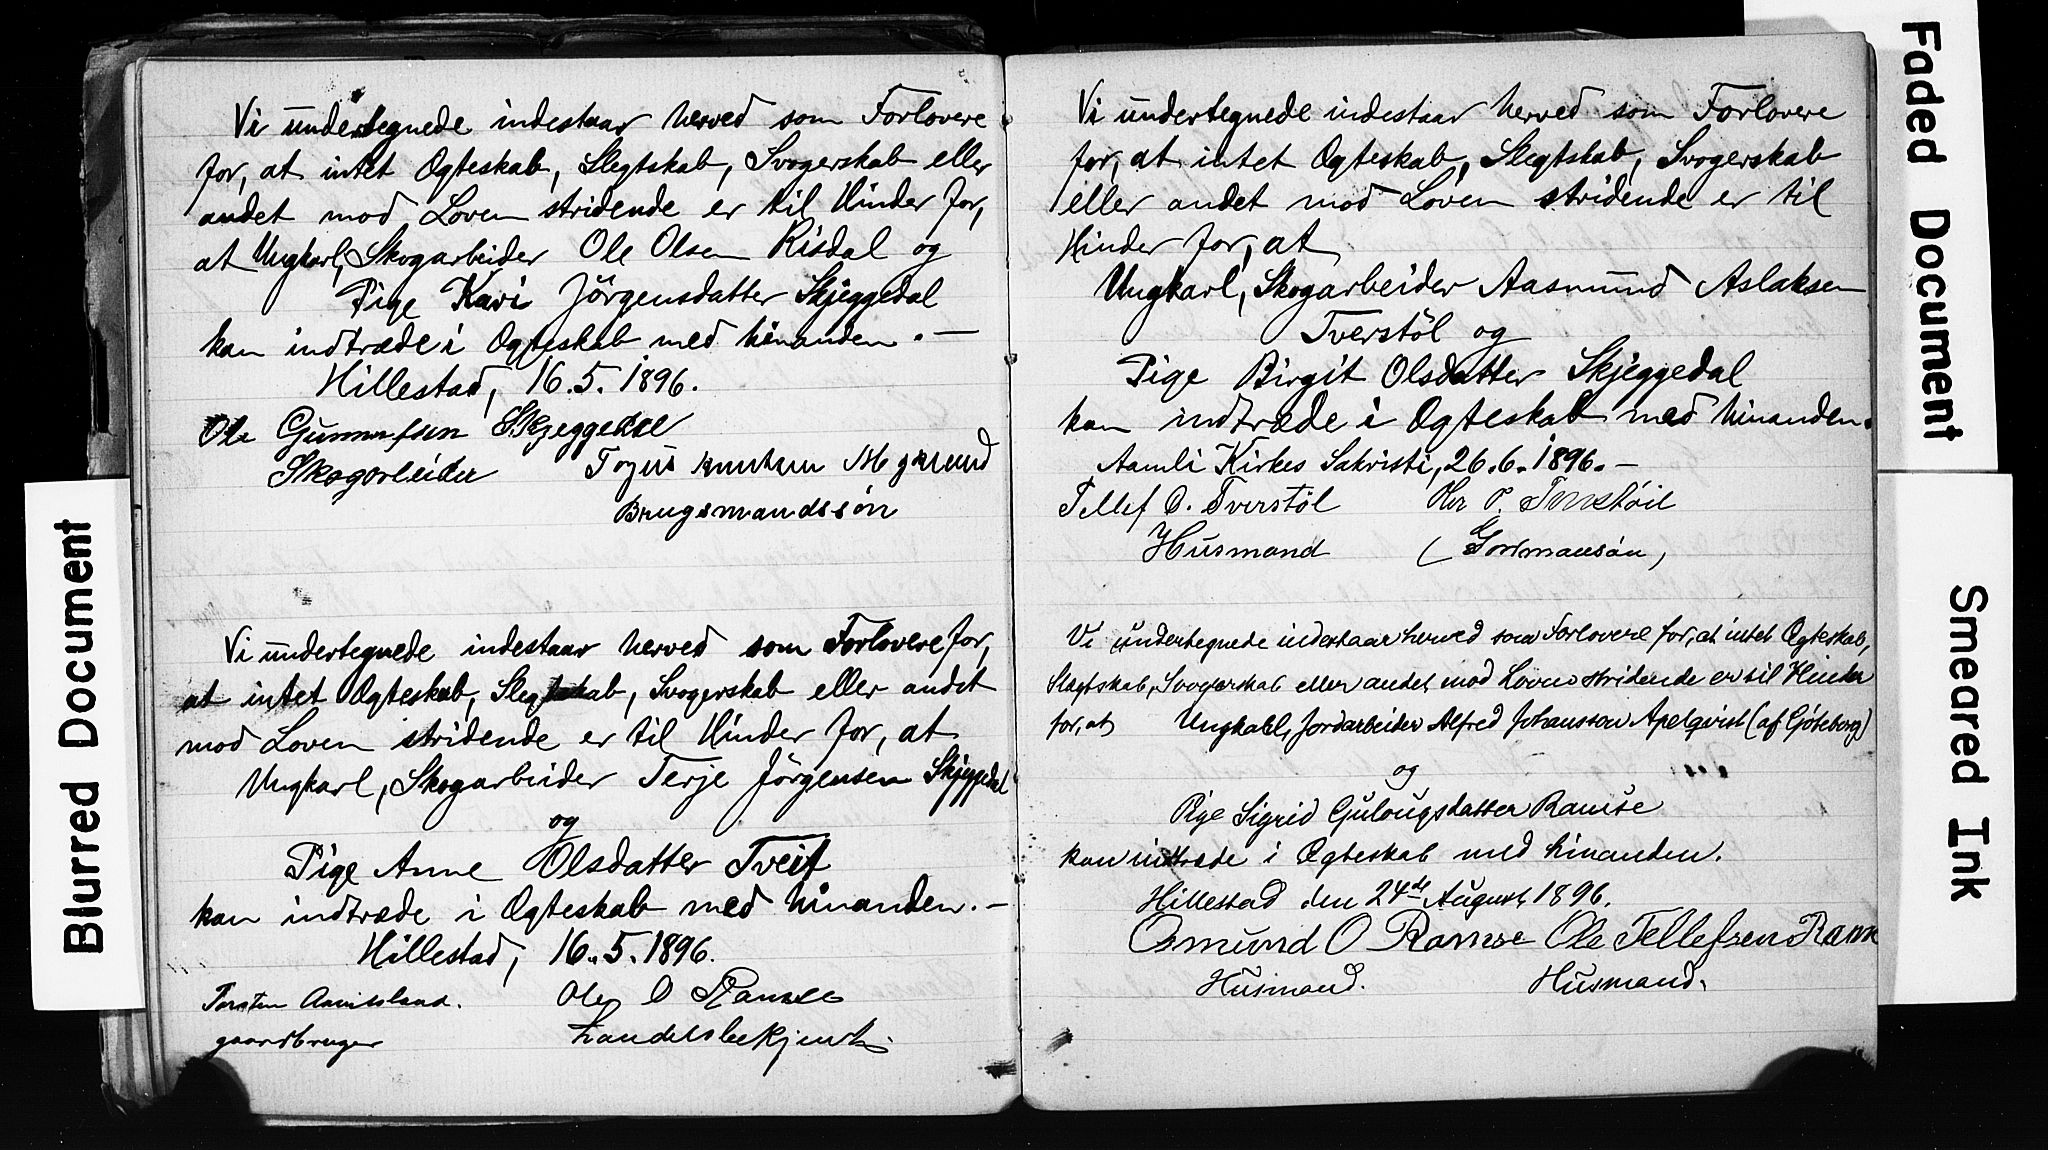 Vi undertegnede indestaar herved som Forlovere
for, at intet Ægteskab, Slegtskab, Svogerskab eller
andet mod Loven stridende er til Hinder for,
at Ungkarl, Skogarbeider Ole Olsen Risdal og
Pige Kari Jörgensdatter Skjeggedal
kan indtræde i Ægteskab med hinanden. —
Hillestad, 16.5.1896.
Ole Gunnufsen Skjeggedal
Skogarbeider
Brugsmandssön
Vi undertegnede indestaar herved som Forlovere for,
at intet Ægteskab, Slegtskab, Svogerskab eller andet
mod Loven stridende er til Hinder for, at
Ungkarl, Skogarbeider Terje Jörgensen Skjeggedal
og
Pige Anne Olsdatter Tveit
kan indtræde i Ægteskab med hinanden. —
Hillestad, 16.5.1896.
Ole O Ramse
gaardbruger
Vi undertegnede indestaar herved som Forlovere
for, at intet Ægteskab, Slegtskab, Svogerskab
eller andet mod Loven stridende er til
Hinder for, at
Ungkarl, Skogarbeider Aasmund Aslaksen
Tverstöl og
Pige Birgit Olsdatter Skjeggedal
kan indtræde i Ægteskab med hinanden.
Aamli Kirkes Sakristi, 26.6.1896. —
Tellef O. Tverstöl
Husmand
Vi undertegnede indestaar herved som Forlovere for, at intet Ægteskab,
Slægtskab, Svogerskab eller andet mod Loven stridende er til Hinder
for, at Ungkarl, Jordarbeider Alfred Johansson Apelqvist (af Göteborg)
og
Pige Sigrid Gulougsdatter Ramse
kan indtræde i Ægteskab med hinanden.
Hillestad den 24de August 1896.
Osmund O Ramse Ole Tellefsen Ramse
Husmand. Husmand.
Blurred Document
Faded Document
Smeared Ink